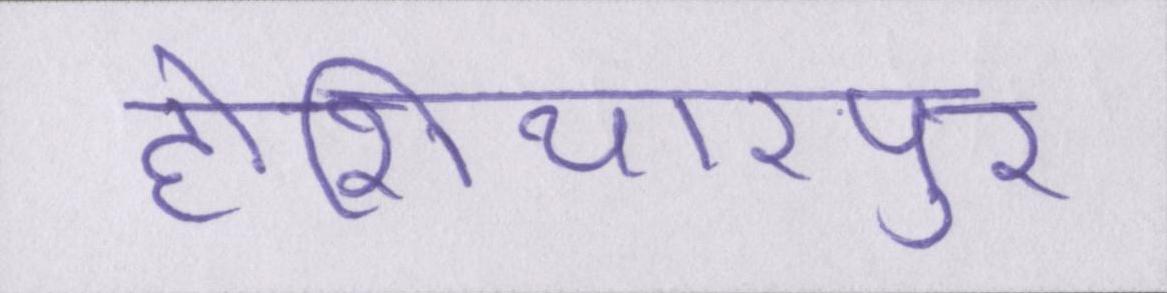 होशियारपुर